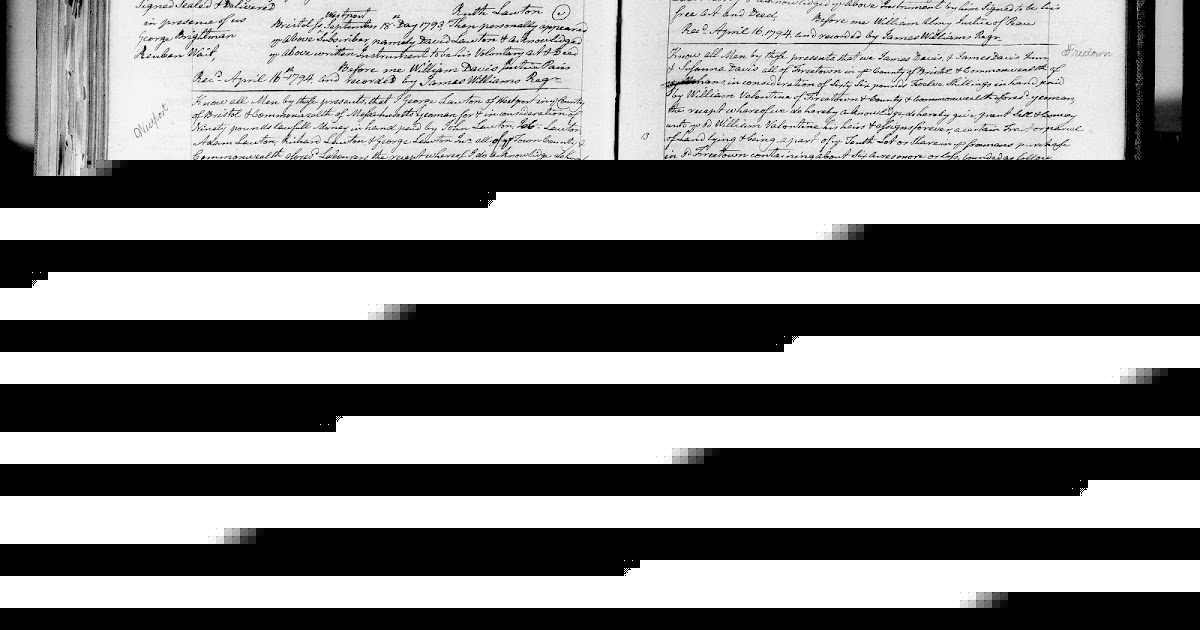 Signed Sealed & Delivered
in presence of us
George Brightman
Reuben Wait,
Ruth Lawton
Westport
Bristol Ss September 18th Day 1793 Then personally appeared
ye above Subscriber, namely David Lawton & acknowledged
ye above written Instrument to be his Voluntary act & Deed
Before me William Davis Justice Pacis
Recd. April 16th 1794, and recorded by James Williams Regr.
Westport
Know all Men by these presents, that I George Lawton of Westport in ye County
of Bristol & Commonwealth of Massachusetts yeoman for & in consideration of
Ninety pounds lawfull Money in hand paid by John Lawton, Job Lawton
Adam Lawton, Richard Lawton & George Lawton Junr. all of ye Town County &
Commonwealth aforesd. Labourers the receipt whereof I do acknowledge do here
free act and Deed,
Before me William Almy Justice of Peace
Recd. April 16. 1794. and recorded by James Williams Regr.
Freetown
Know all Men by these presents that we James Davis, & James Davis Junr
& Susanna Davis all of Freetown in ye County of Bristol & Commonwealth of
in consideration of Sixty Six pounds Twelve Shillings in hand paid
by William Valentine of Freetown & County & Commonwealth aforesd. yeoman,
the receipt whereof we do hereby acknowledge do hereby give, grant Sell & Convey
unto ye sd William Valentine his heirs & assigns forever, a certain
13
of Land lying & being a part of ye Tenth Lot or Share in ye freemans purchase
in sd Freetown containing about Six Acres more or less, bounded as follows